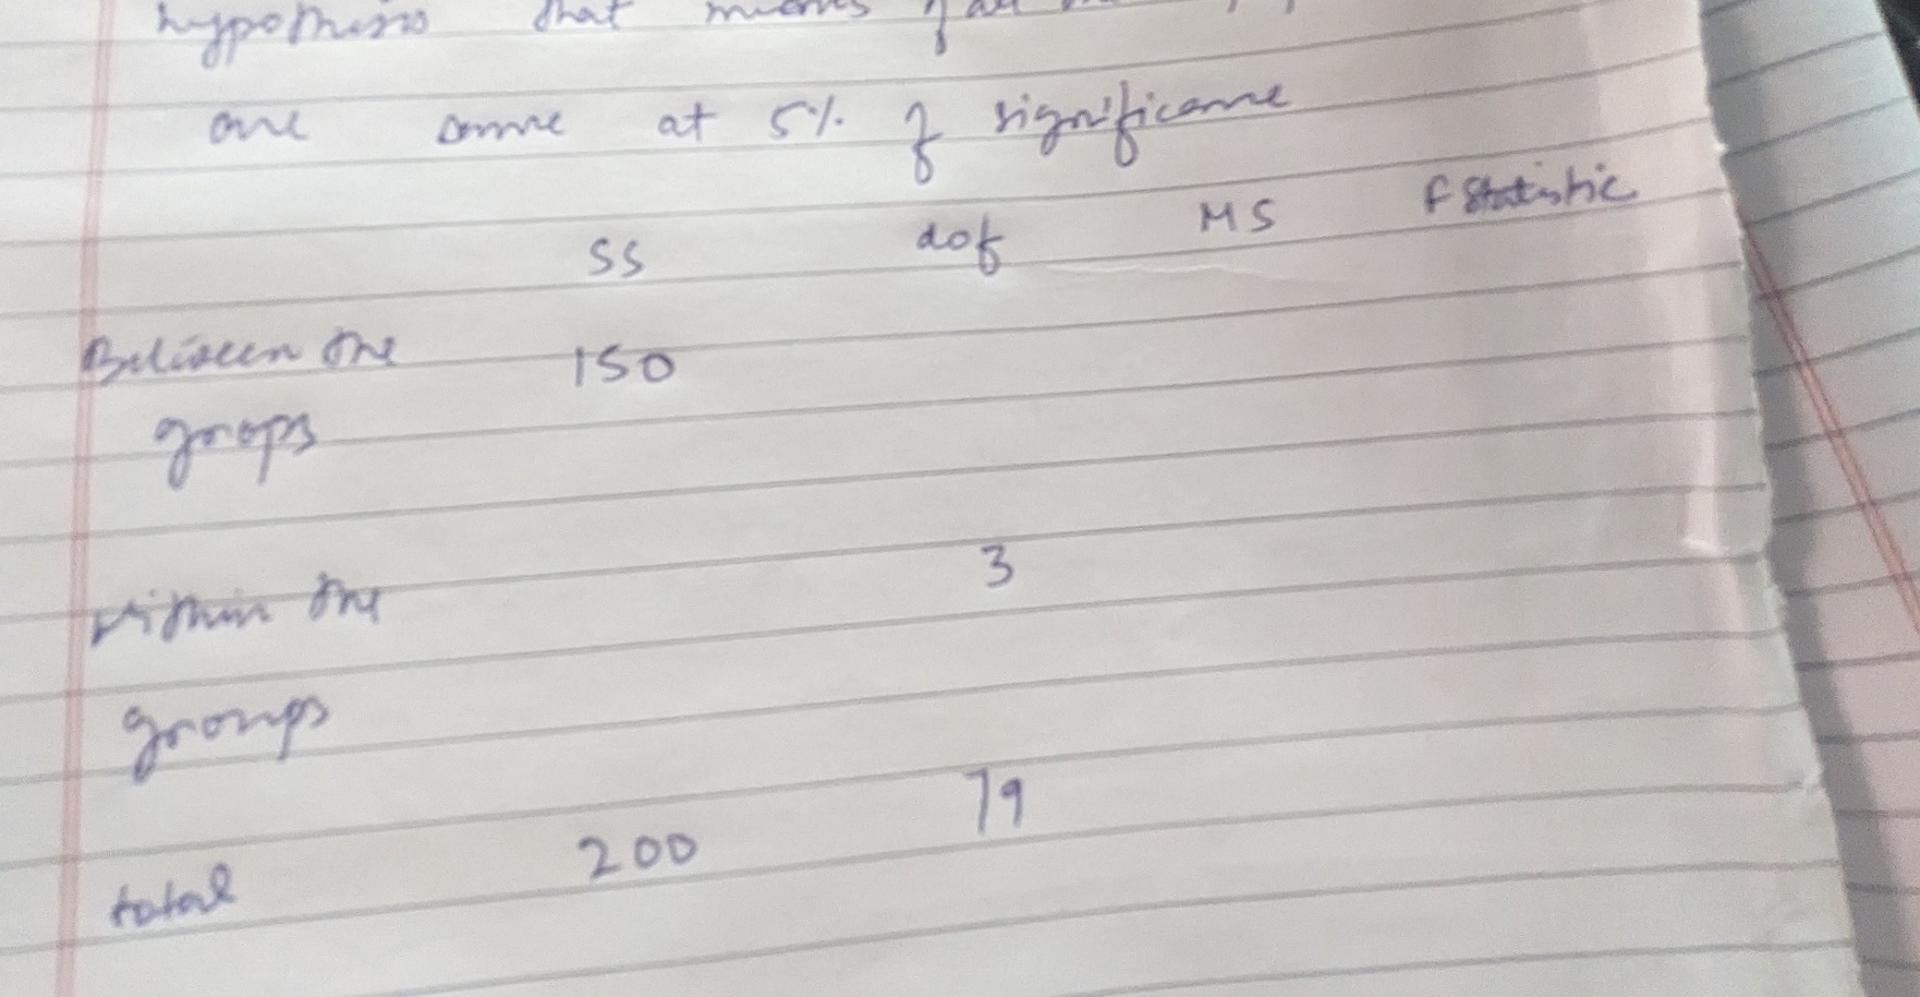 hypothesis that means of all
are same at 5% of significance
SS dof MS F Statistic
Between the 150
groops
within the 3
groups
total 200 79